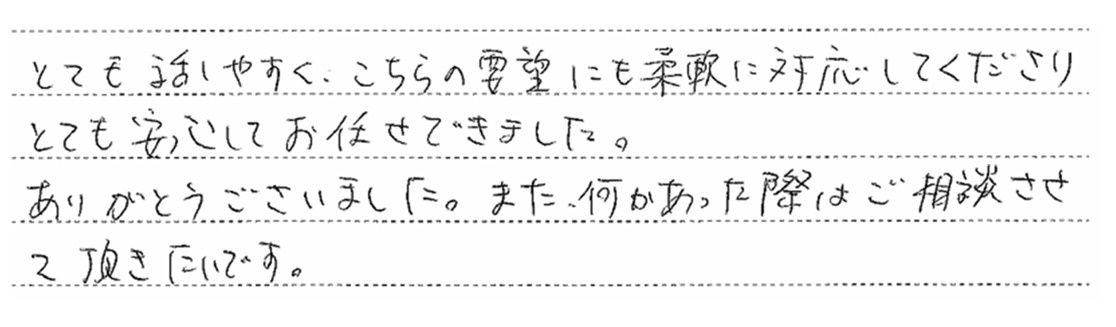 とても話しやすく、こちらの要望にも柔軟に対応してくださり
とても安心してお任せできました。
ありがとうございました。また、何かあった際はご相談させ
て頂きたいです。